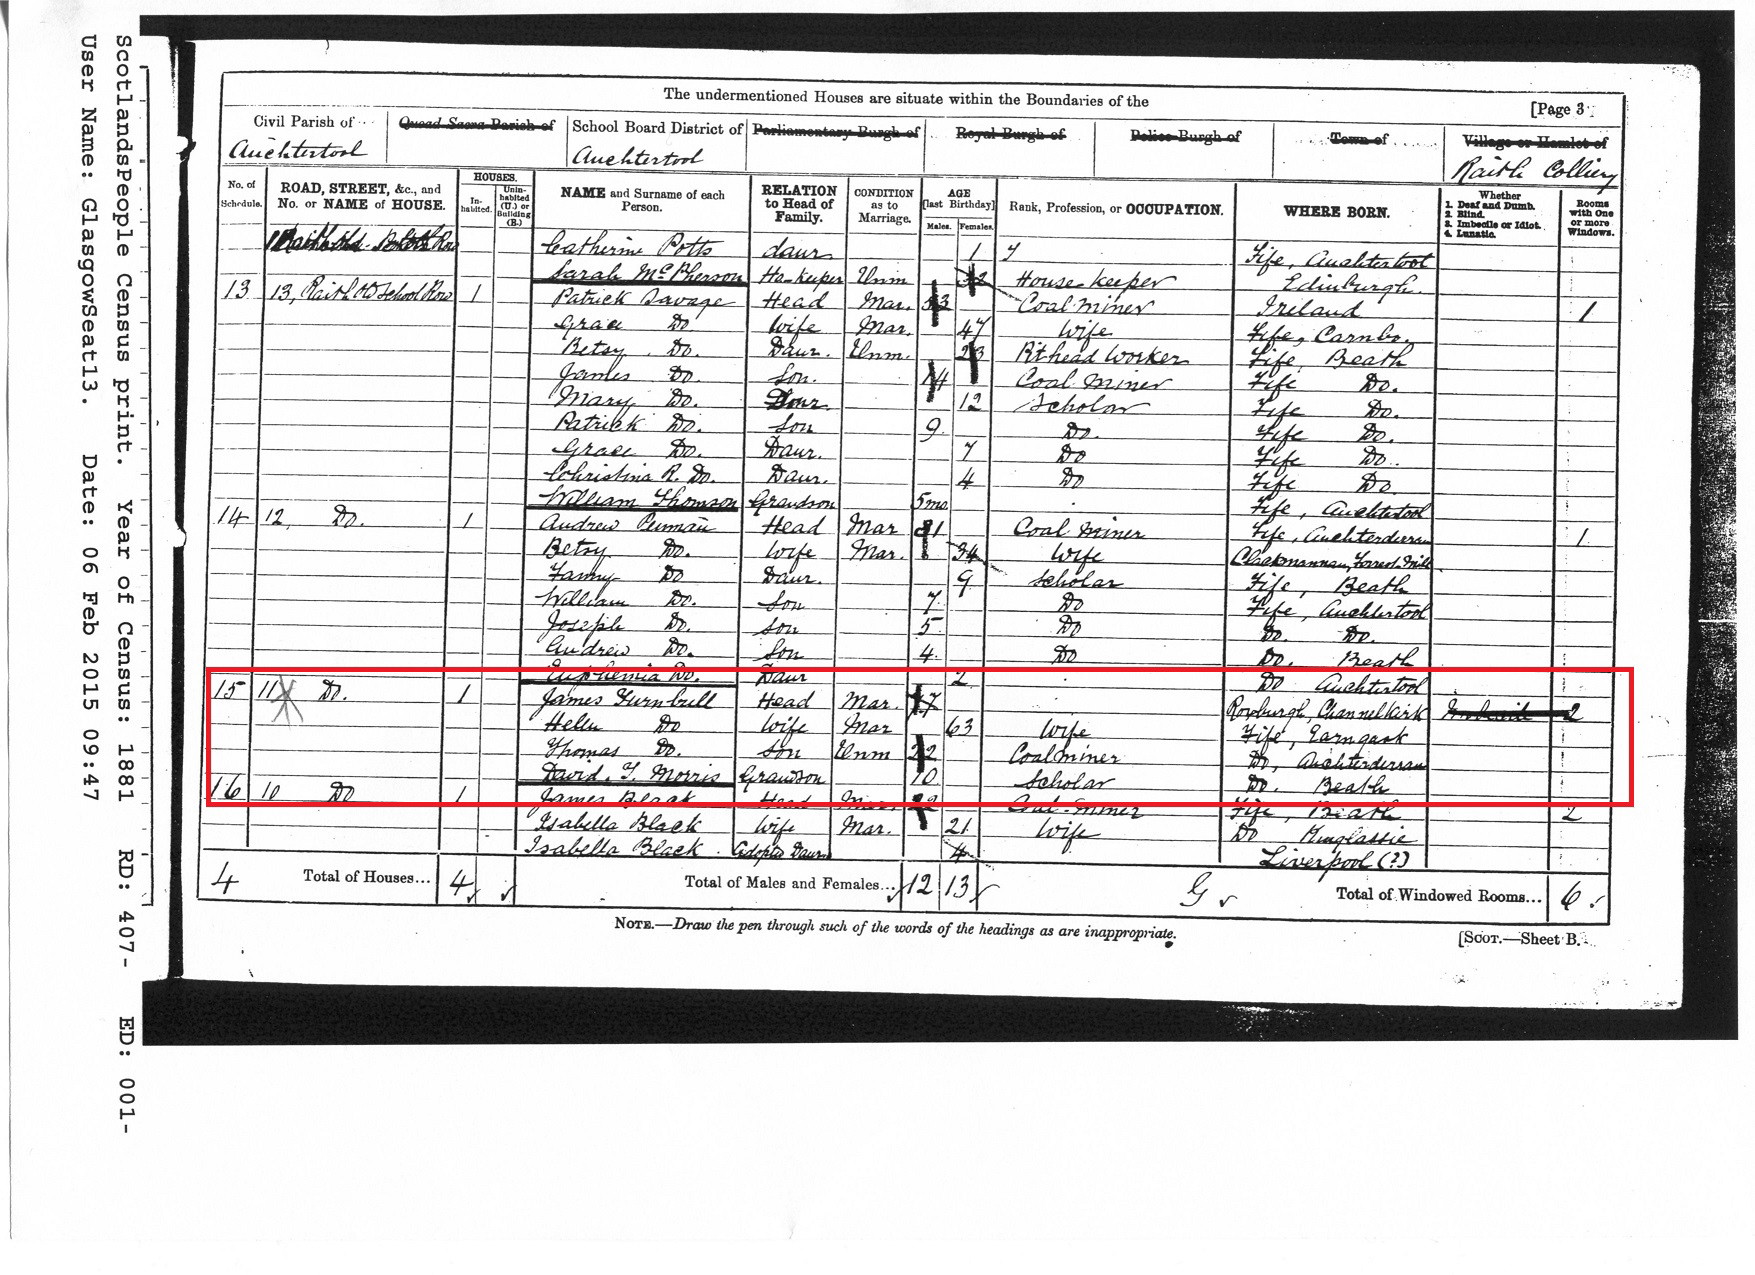 ScotlandsPeople Census print. Year of Census: 1881 RD: 407- ED: 001-
User Name: GlasgowSeat13. Date: 06 Feb 2015 09:47
The undermentioned Houses are situate within the Boundaries of the
[Page 3
Civil Parish of Quoad Sacra Parish of School Board District of Parliamentary Burgh of Royal Burgh of Police Burgh of Town of Village or Hamlet of
Auchtertool Auchtertool Raith Colliery
No. of Schedule. ROAD, STREET, &c., and No. or NAME of HOUSE. HOUSES. Inhabited. Uninhabited (U.) or Building (B.) NAME and Surname of each Person. RELATION to Head of Family. CONDITION as to Marriage. AGE [last Birthday] Males. Females. Rank, Profession, or OCCUPATION. WHERE BORN. Whether 1. Deaf and Dumb. 2. Blind. 3. Imbecile or Idiot. 4. Lunatic. Rooms with One or more Windows.
Catherine Potts daur 1 Fife, Auchtertool
Sarah McPherson Ho-Keeper Unm 32 House Keeper Edinburgh.
13 13, Raith Old School Row 1 Patrick Savage Head Mar. 53 Coal Miner Ireland 1
Grace Do. Wife Mar. 47 Wife Fife, Carnbo.
Betsy Do. Daur. Unm. 23 Pithead Worker Fife, Beath
James Do. Son. 14 Coal Miner Fife Do.
Mary Do. Daur. 12 Scholar Fife Do.
Patrick Do. Son 9 Do. Fife Do.
Grace Do. Daur. 7 Do Fife Do.
Christina R. Do. Daur. 4 Do Fife Do
William Thomson Grandson 5mo. Fife, Auchtertool
14 12, Do. 1 Andrew Penman Head Mar 31 Coal Miner Fife, Auchterderran 1
Betsy Do. Wife Mar. 34 Wife Clackmannan, Forrest Mill
Fanny Do Daur. 9 Scholar Fife, Beath
William Do. Son 7 Do Fife, Auchtertool
Joseph Do. Son 5 Do Do. Do.
Andrew Do. Son 4 Do Do. Beath
Euphemia Do. Daur 2 Do Auchtertool
15 11 Do. 1 James Turnbull Head Mar. 77 Roxburgh, Channelkirk 2
Helen Do Wife Mar 63 Wife Fife, Earngask
Thomas Do. Son Unm 22 Coalminer Do, Auchterderran
David. T. Morris Grandson 10 Scholar Do. Beath
16 10 Do 1 James Black Head 22 Coal Miner Fife, Beath 2
Isabella Black Wife Mar. 21 Wife Do Kinglassie
Isabella Black Adopted Daur 4 Liverpool (?)
4 Total of Houses... 4 Total of Males and Females... 12 13 G Total of Windowed Rooms... 6
NOTE.—Draw the pen through such of the words of the headings as are inappropriate.
[SCOT.—Sheet B.